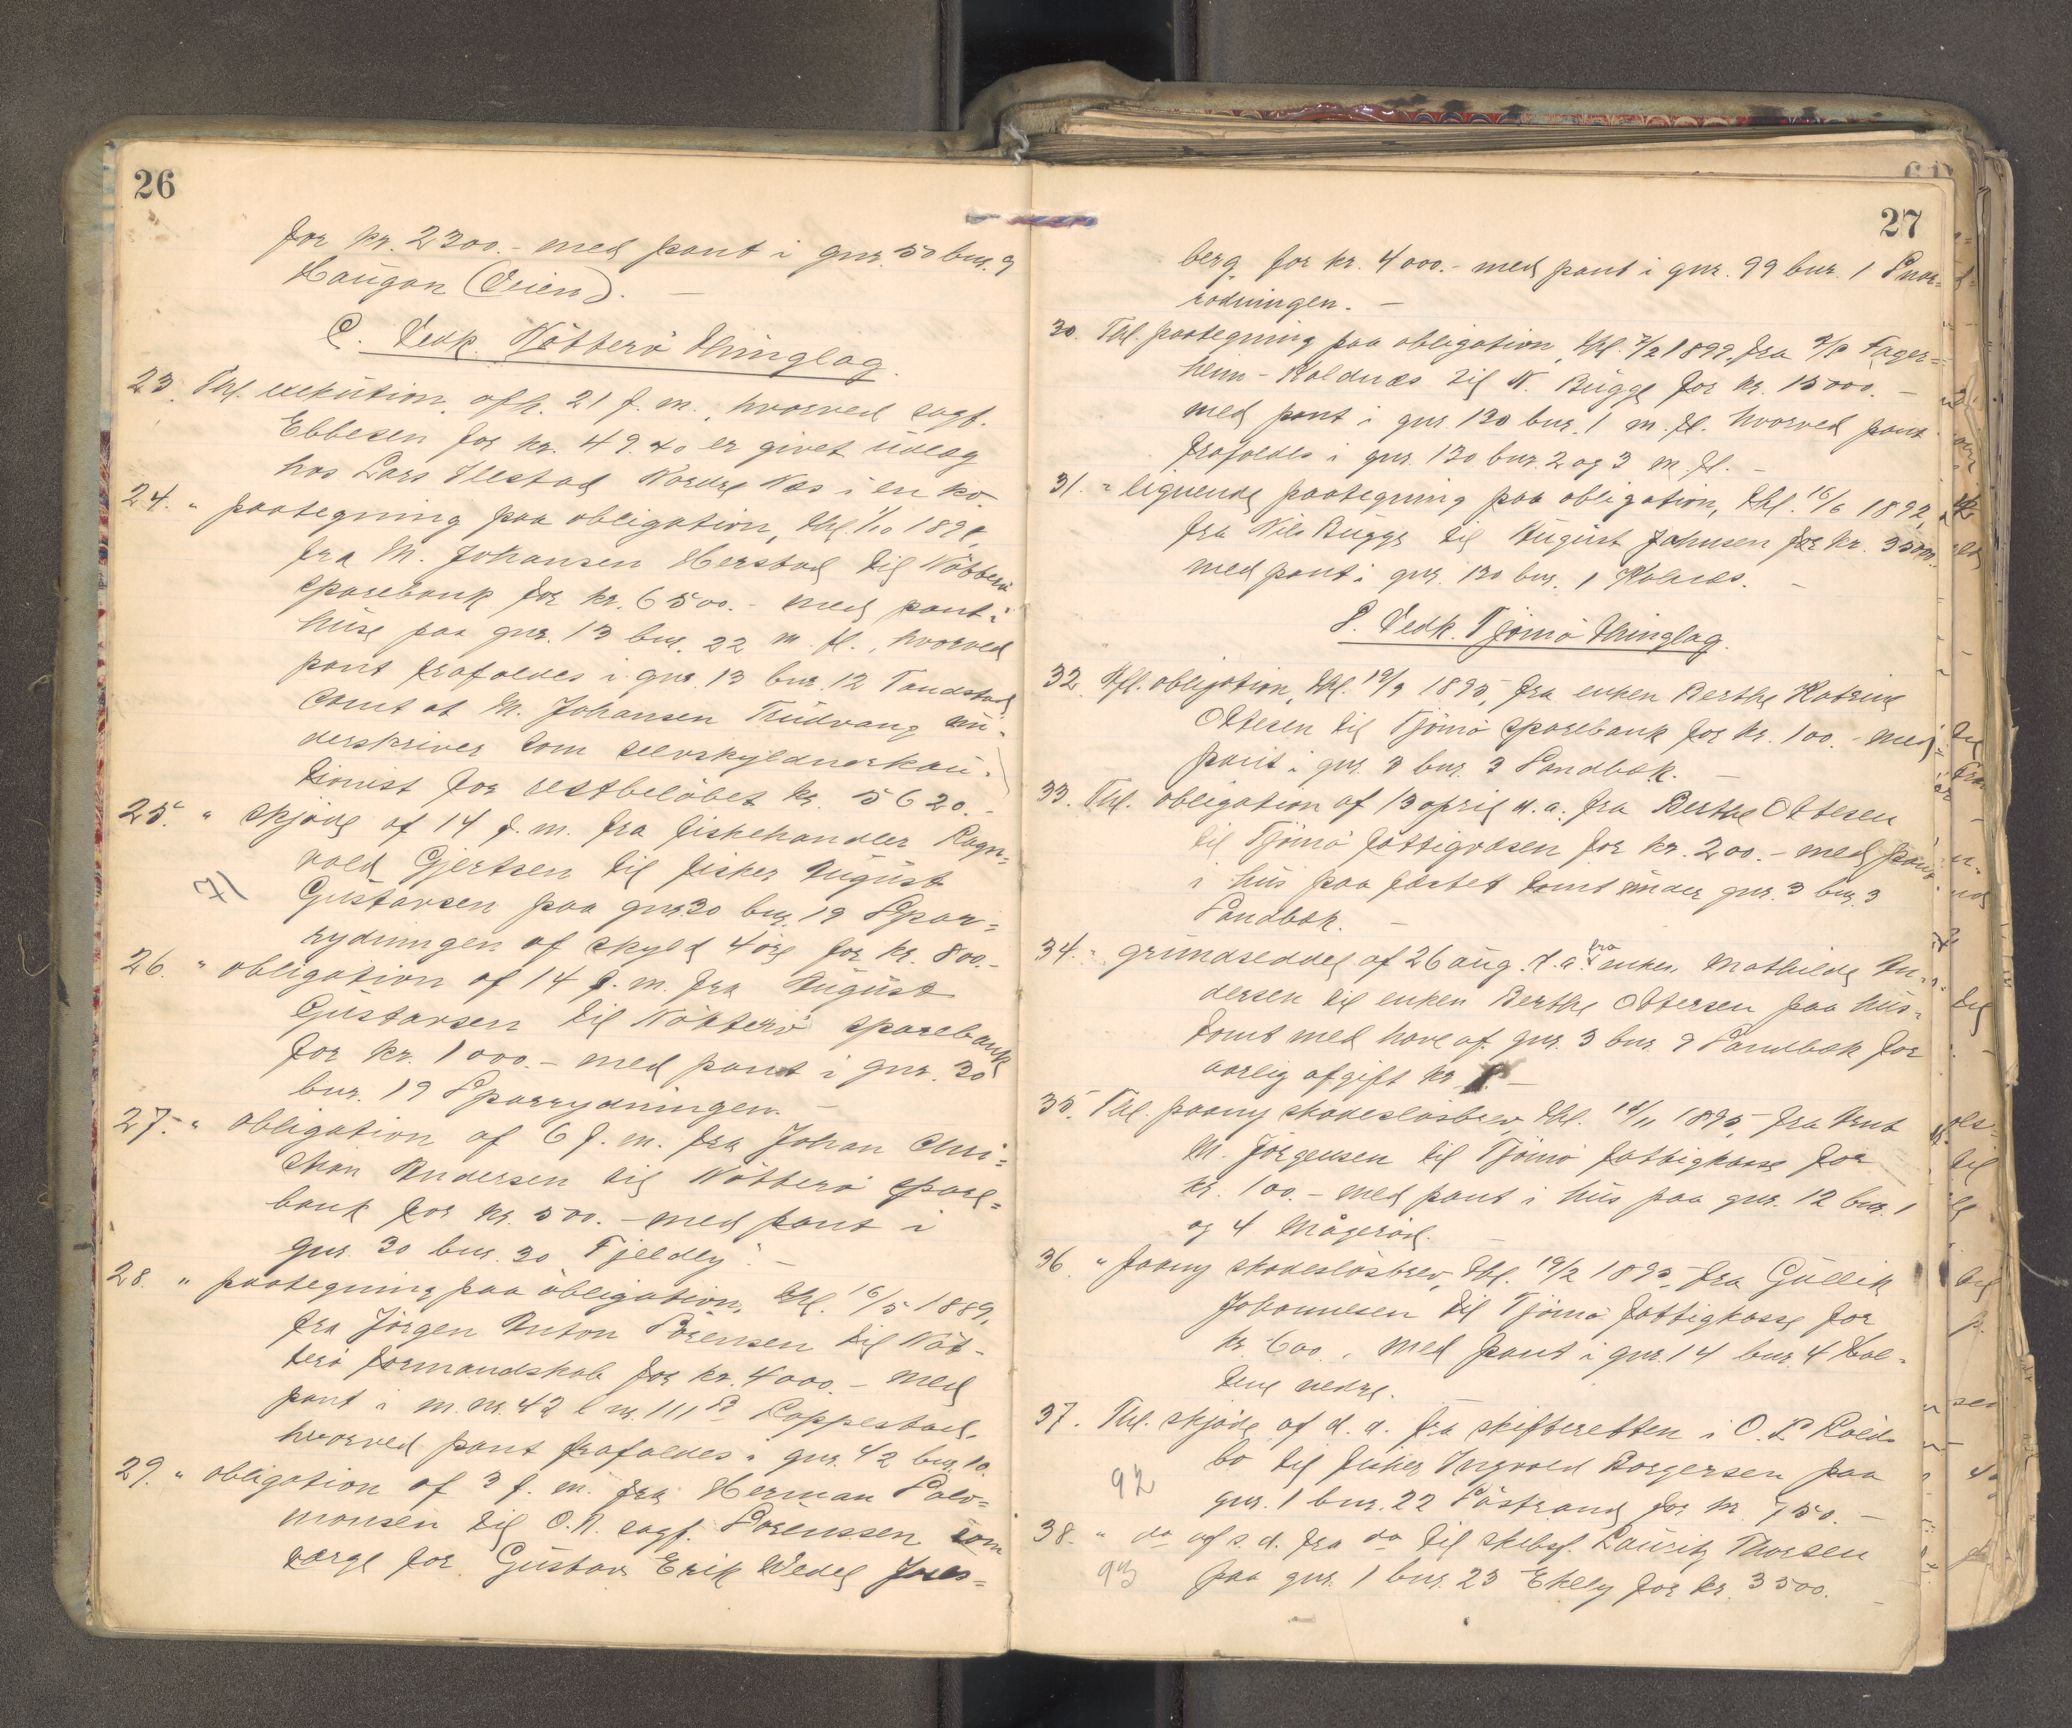 26
for kr. 2300.- med pant i gnr. 50 bnr. 9
Haugan (Veien). -
C. Vedk. Nötterö thinglag.
23. Thl. exekution afh. 21 f. m., hvorved sagf.
Ebbesen for kr. 49.40 er givet udlæg
hos Lars Ilestad Nordre Næs i en ko
24. " paategning paa obligation, thl. 1/10 1890,
fra M. Johansen Herstad til Nötterö
sparebank for kr. 6500.- med pant i
huse paa gnr. 13 bnr. 22 m. fl., hvorved
pant frafaldes i gnr. 13 bnr. 12
samt at M. Johansen Trudvang un-
derskriver som selvskyldnerkau-
tionist for restbelöbet kr. 5620.-
25. " skjöde af 14 f. m. fra fiskehandler Ragn-
vald Gjertsen til fisker August
71
Gustavsen paa gnr. 30 bnr. 19 Spar-
rydningen af skyld 4 öre for kr. 800.-
26. " obligation af 14 f. m. fra August
Gustavsen til Nötterö sparebank
for kr. 1000.- med pant i gnr. 30
bnr. 19 Sparrydningen. -
27. " obligation af 6 f. m. fra Johan Chri-
stian Andersen til Nötterö spare-
bank for kr. 500.- med pant i
gnr. 30 bnr. 30 Fjeldly. -
28. " paategning paa obligation, thl. 16/5 1889,
fra Jörgen Anton Sörensen til Nöt-
terö formandskab for kr. 4000.- med
pant i m. nr. 42 l nr. 111 Roppestad,
hvorved pant frafaldes i gnr. 42 bnr. 10.
29. " obligation af 3 f. m. fra Herman Salo-
monsen til O.R. sagf. Sörenssen som
værge for Gustav Erik Wedel Jarls-
27
berg, for kr. 4000.- med pant i gnr. 99 bnr. 1 Snar-
rödningen. -
30. Thl. paategning paa obligation, thl. 7/2 1899, fra a/s Fager-
heim - Kaldnæs til N. Bugge for kr. 15000. -
med pant i gnr. 130 bnr. 1 m. fl. hvorved pant
frafaldes i gnr. 130 bnr. 2 og 3 m. fl. -
31. " lignende paategning paa obligation, thl. 16/6 1892,
fra Nils Bugge til August Johnsen for kr. 35000.
med pant i gnr. 130 bnr. 1 Kalnæs. -
D. Vedk. Tjömö thinglag.
32. Afl. obligation, thl. 19/9 1895, fra enken Berthe Katrine
Ottesen til Tjömö sparebank for kr. 100.- med
pant i gnr. 3 bnr. 3 Sandbæk. -
33. Thl. obligation af 13 april d. a. fra Berthe Ottesen
til Tjömö fattigvæsen for kr. 200.- med pant
i hus paa fæstet tomt under gnr. 3 bnr. 3
Sandbæk. -
34. " grundseddel af 26 aug. d. a. fra enken Mathilde An-
dersen til enken Berthe Ottersen paa hus-
tomt med have af gnr. 3 bnr. 9 Sandbæk for
aarlig afgift kr -
35. Thl. paany skadeslösbrev thl. 14/11 1895, fra Arnt
M. Jörgensen til Tjömö fattigkasse for
kr. 100.- med pant i hus paa gnr. 12 bnr. 1
og 4 Mågeröd.
36. " paany skadeslösbrev, thl. 19/2 1895, fra Gullik
Johannesen til Tjömö fattigkasse for
kr. 600., med pant i gnr. 14 bnr. 4 Hol-
tene nedre. -
37. Thl. skjöde af d. d. fra skifteretten i O. P. Röeds
bo til fisker Ingvald Borgersen paa
92
gnr. 1 bnr. 22 Söstrand for kr. 750. -
38. " do af s. d. fra do til skibsf. Lauritz Thorsen
93
paa gnr. 1 bnr. 23 Ekely for kr. 3500. -